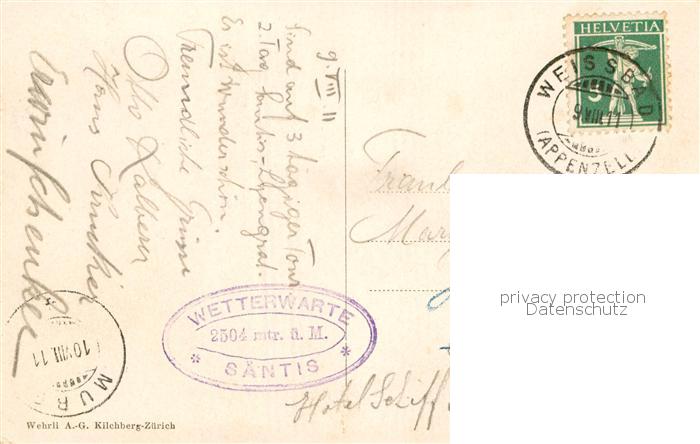 9. VIII. 11
Sind auf 3 tägiger Tour
2. Tag Säntis-Lysengrat.
Es ist wunderschön.
Freundliche Grüsse
Otto Kälberer
Hans
HELVETIA
5
WEISSBAD
9.VIII.11
(APPENZELL)
Fräul
Mar
privacy protection
Datenschutz
WETTERWARTE
2504 mtr. ü. M.
* SÄNTIS *
Hotel Schiff
10.VIII.11
MUR
Wehrli A.-G. Kilchberg-Zürich